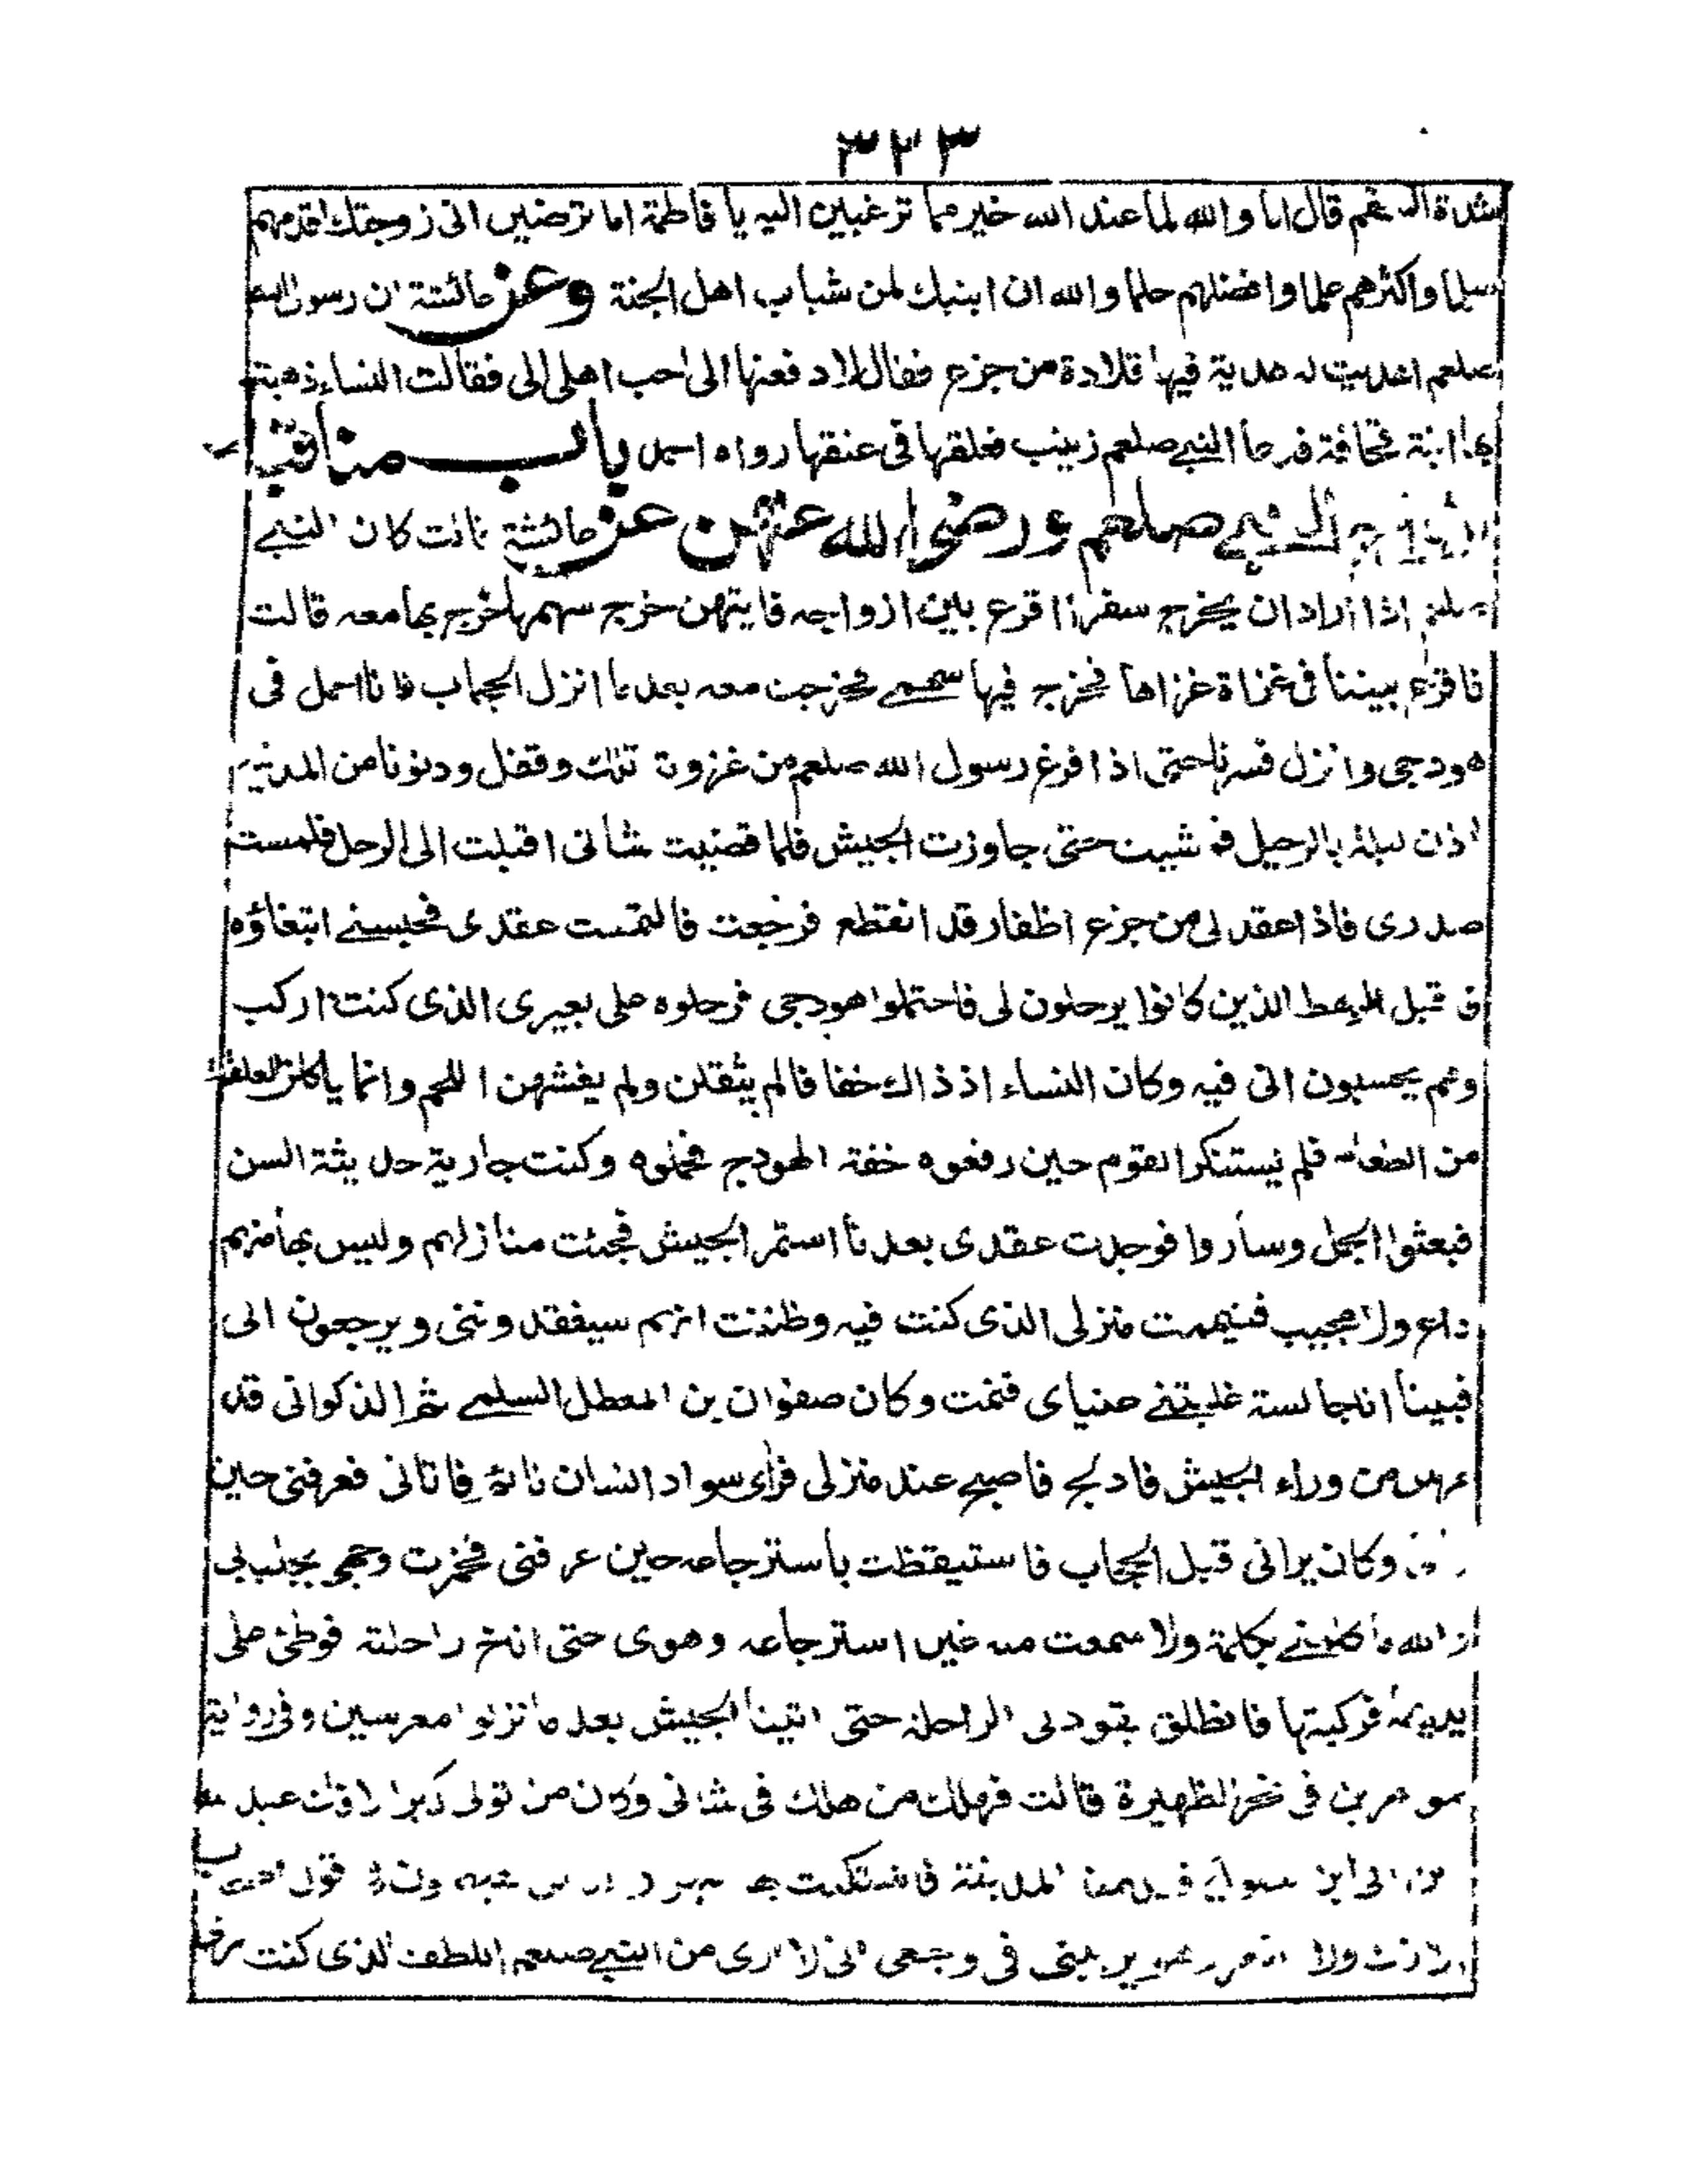 ٣٢٣
شدة السقم قال اما والله لما عند الله خير مما ترغبين اليه يا فاطمة اما ترضين انى زوجتك اقدمهم
سلما واكثرهم علما وافضلهم حلما والله ان ابنيك لمن شباب اهل الجنة وعن عائشة ان رسول الله
صلعم اهديت له هدية فيها قلادة من جزع فقال لادفعنها الى احب اهلى الى فقالت النساء ذهبت
بها ابنة قحافة فدعا النبى صلعم زينب فعلقها فى عنقها رواه احمد باب مناقب
ازواج النبى صلعم ورضى الله عنهن عن عائشة قالت كان النبى
صلعم اذا اراد ان يخرج سفرا اقرع بين ازواجه فايتهن خرج سهمها خرج بها معه قالت
فاقرع بيننا فى غزاة غزاها فخرج فيها سهمى فخرجت معه بعد ما انزل الحجاب فانا احمل فى
هودجى وانزل فسرنا حتى اذا فرغ رسول الله صلعم من غزوة تلك وقفل ودنونا من المدينة
اذن ليلة بالرحيل فمشيت حتى جاوزت الجيش فلما قضيت شانى اقبلت الى الرحل فلمست
صدرى فاذا عقد لى من جزع اظفار قد انقطع فرجعت فالتمست عقدى فحبسنى ابتغاؤه
فاقبل الرهط الذين كانوا يرحلون لى فاحتملوا هودجى فرحلوه على بعيرى الذى كنت اركب
وهم يحسبون انى فيه وكان النساء اذ ذاك خفافا لم يثقلن ولم يغشهن اللحم وانما ياكلن العلقة
من الطعام فلم يستنكر القوم حين رفعوه خفة الهودج فحملوه وكنت جارية حديثة السن
فبعثوا الجمل وساروا فوجدت عقدى بعد ما استمر الجيش فجئت منازلهم وليس بها منهم
داع ولا مجيب فتيممت منزلى الذى كنت فيه وظننت انهم سيفقدوننى ويرجعون الى
فبينا انا جالسة غلبتنى عيناى فنمت وكان صفوان بن المعطل السلمى ثم الذكوانى قد
عرس من وراء الجيش فادلج فاصبح عند منزلى فراى سواد انسان نائم فاتانى فعرفنى حين
وكان يرانى قبل الحجاب فاستيقظت باسترجاعه حين عرفنى فخمرت وجهى بجلبابى
والله ما كلمنى بكلمة ولا سمعت منه غير استرجاعه وهوى حتى اناخ راحلته فوطئ على
يديها فركبتها فانطلق يقود بى الراحلة حتى اتينا الجيش بعد ما نزلوا معرسين وفى رواية
موغرين فى نحر الظهيرة قالت فهلك من هلك فى شانى وكان من تولى كبر الافك عبد الله
بن ابى ابن سلول فقدمنا المدينة فاشتكيت بها شهرا قول اصحاب
الافك ولا يريبنى فى وجعى انى لا ارى من النبى صلعم اللطف الذى كنت